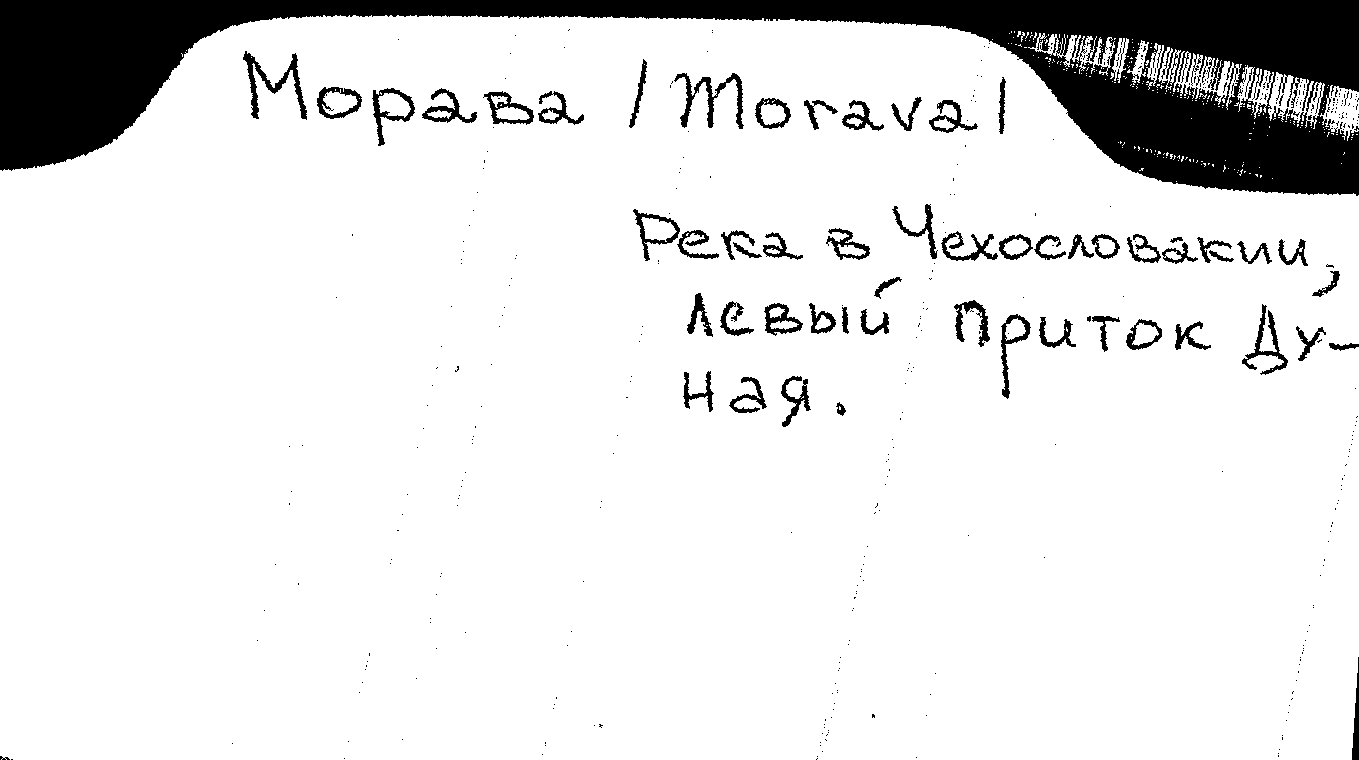 Морава /Morava/
Река в Чехословакии,
левый приток Ду-
ная.